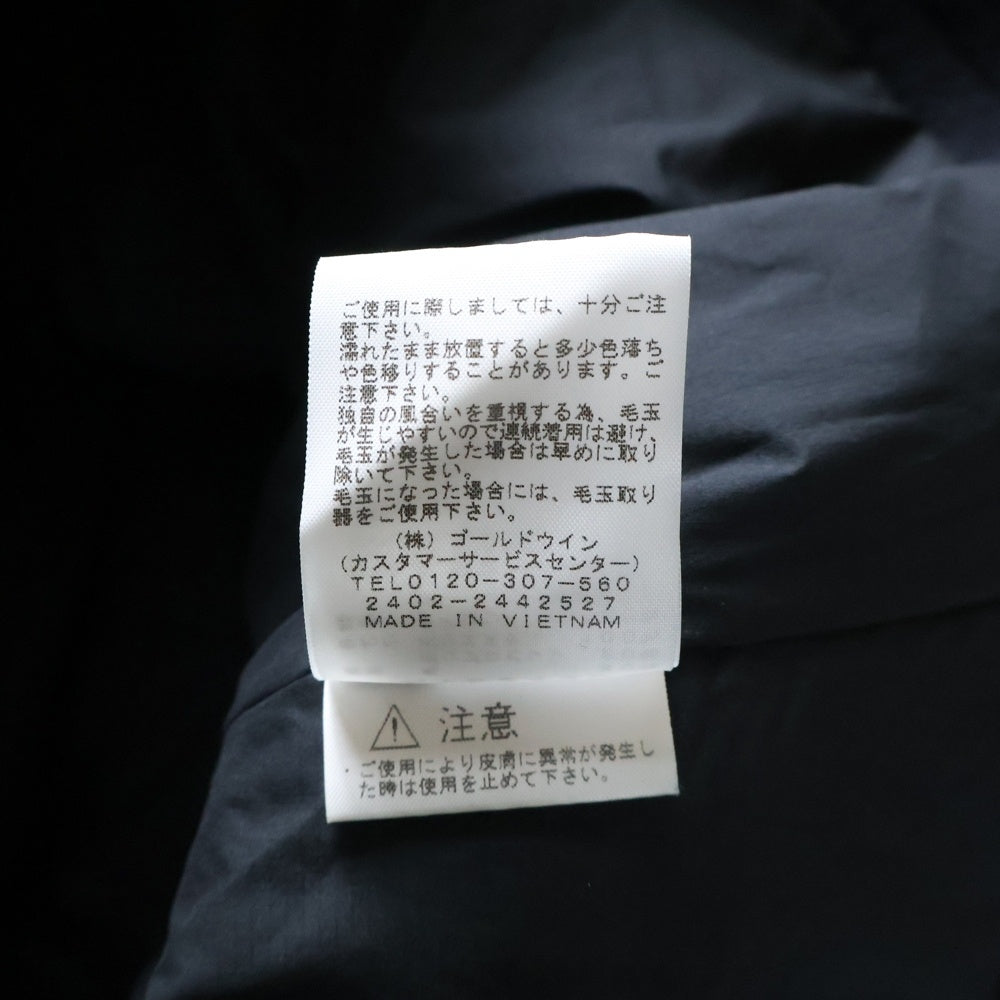 ご使用に際しましては、十分ご注
意下さい。
濡れたまま放置すると多少色落ち
や色移りすることがあります。ご
注意下さい。
独自の風合いを重視する為、毛玉
が生じやすいので連続着用は避け、
毛玉が発生した場合は早めに取り
除いて下さい。
毛玉になった場合には、毛玉取り
器をご使用下さい。
(株)ゴールドウイン
(カスタマーサービスセンター)
TEL0120-307-560
2402-2442527
MADE IN VIETNAM
⚠ 注意
・ご使用により皮膚に異常が発生し
た時は使用を止めて下さい。